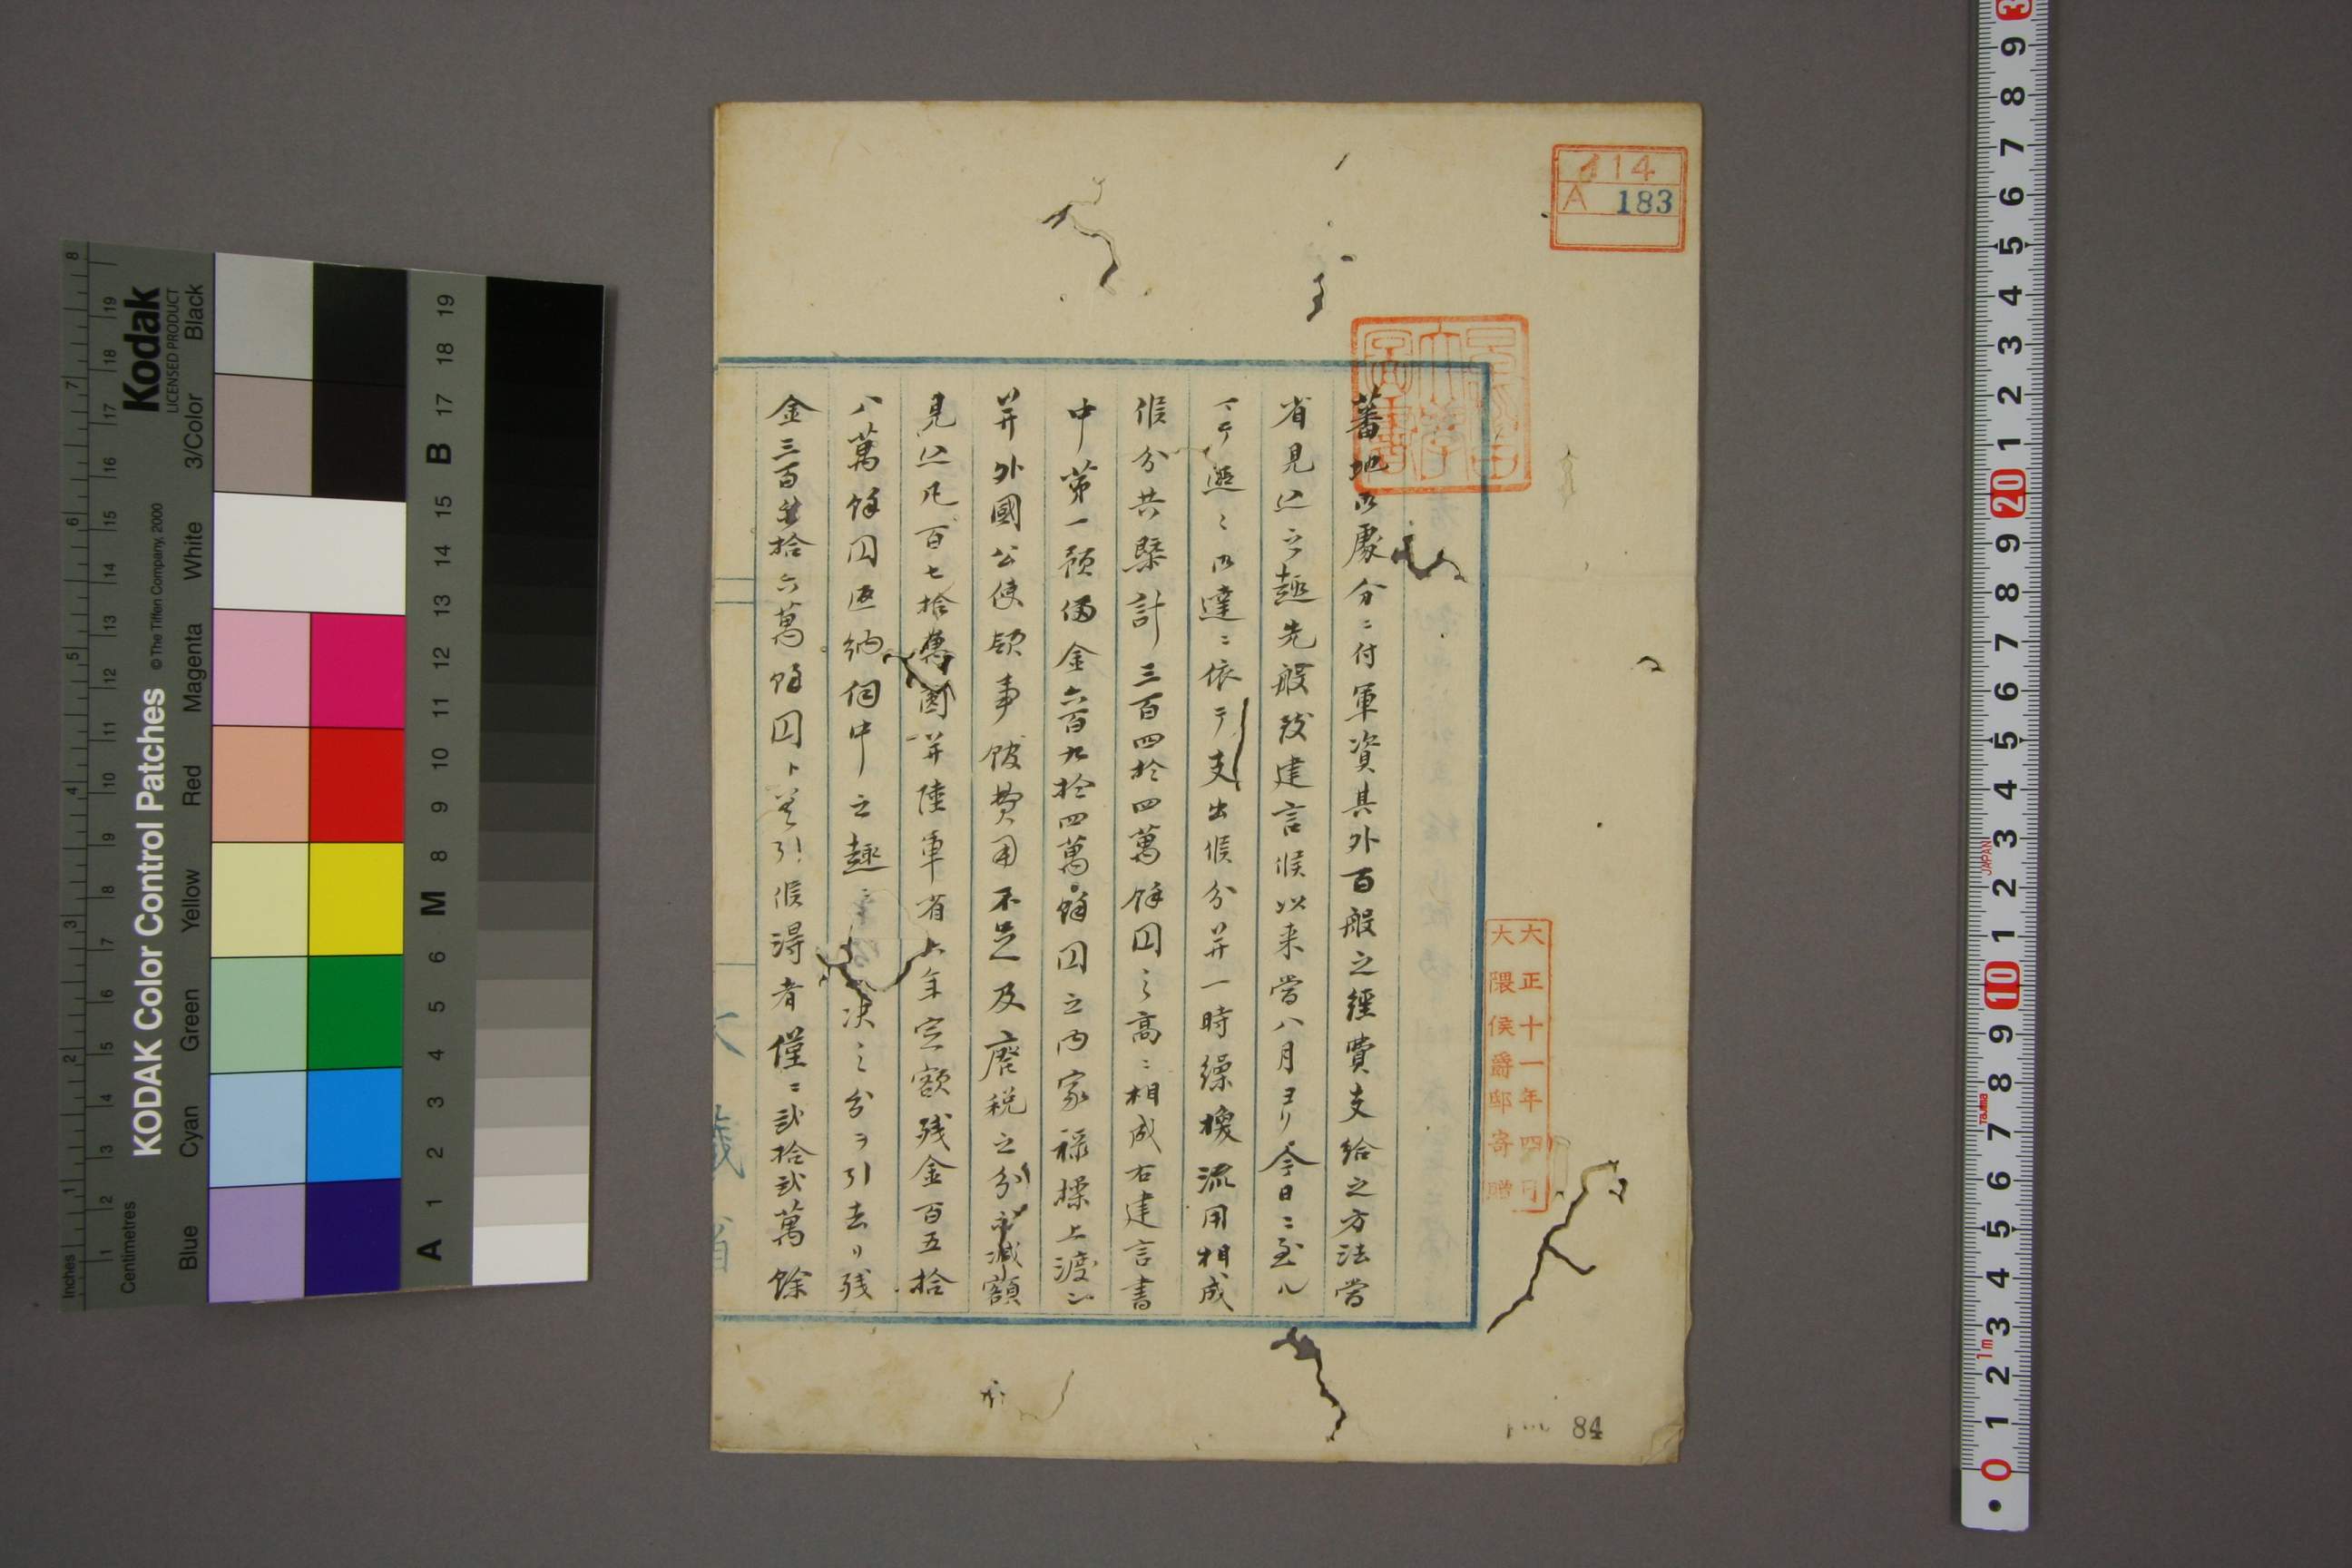 114
A 183
蕃地御處分ニ付軍資其外百般之經費支給之方法當
省見込之趣先般致建言候以来當八月ヨリ今日ニ至ル
マテ逓々御達ニ依テ支出候分并一時繰換流用相成
候分共槩計三百四拾四萬餘円之高ニ相成右建言書
中第一預備金六百九拾四萬餘円之内家禄操上渡シ
并外國公使領事館費用不足及廃税之分減額
見込凡百七拾萬圓并陸軍省六年定額残金百五拾
八萬餘円返納伺中之趣決之分ヲ引去リ残
金三百拾六萬餘円ト差引候得者僅ニ弐拾弐萬餘
大藏省
大正十一年四月
大隈侯爵邸寄贈
84
KODAK Color Control Patches
© The Tiffen Company, 2000
Kodak
LICENSED PRODUCT
Inches
Centimetres
Blue Cyan Green Yellow Red Magenta White 3/Color Black
A 1 2 3 4 5 6 M 8 9 10 11 12 13 14 15 B 17 18 19
JAPAN
Tajima
1m